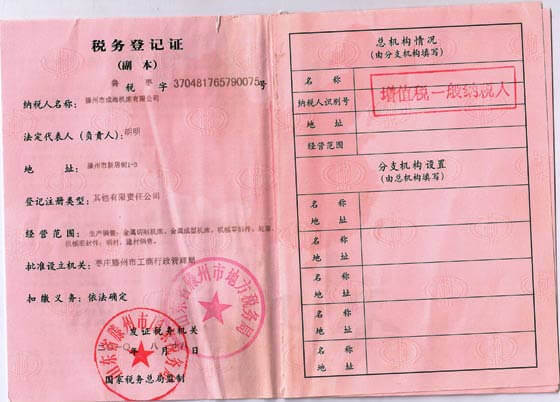 税务登记证
(副 本)
鲁 枣
税 字 370481765790075号
纳税人名称：滕州市成海机床有限公司
法定代表人（负责人）：胡明
地 址：滕州市新居街1-3
登记注册类型：其他有限责任公司
经营范围：生产销售：金属切削机床、金属成型机床、机械零部件、
机械密封件；钢材、建材销售。
批准设立机关：枣庄滕州市工商行政管理局
扣缴义务：依法确定
发证税务机关
年 八 月 日
国家税务总局监制
山东省滕州市国家税务局
山东省滕州市地方税务局
总机构情况
(由分支机构填写)
名 称
纳税人识别号
地 址
经营范围
增值税一般纳税人
分支机构设置
(由总机构填写)
名 称
地 址
名 称
地 址
名 称
地 址
名 称
地 址
名 称
地 址